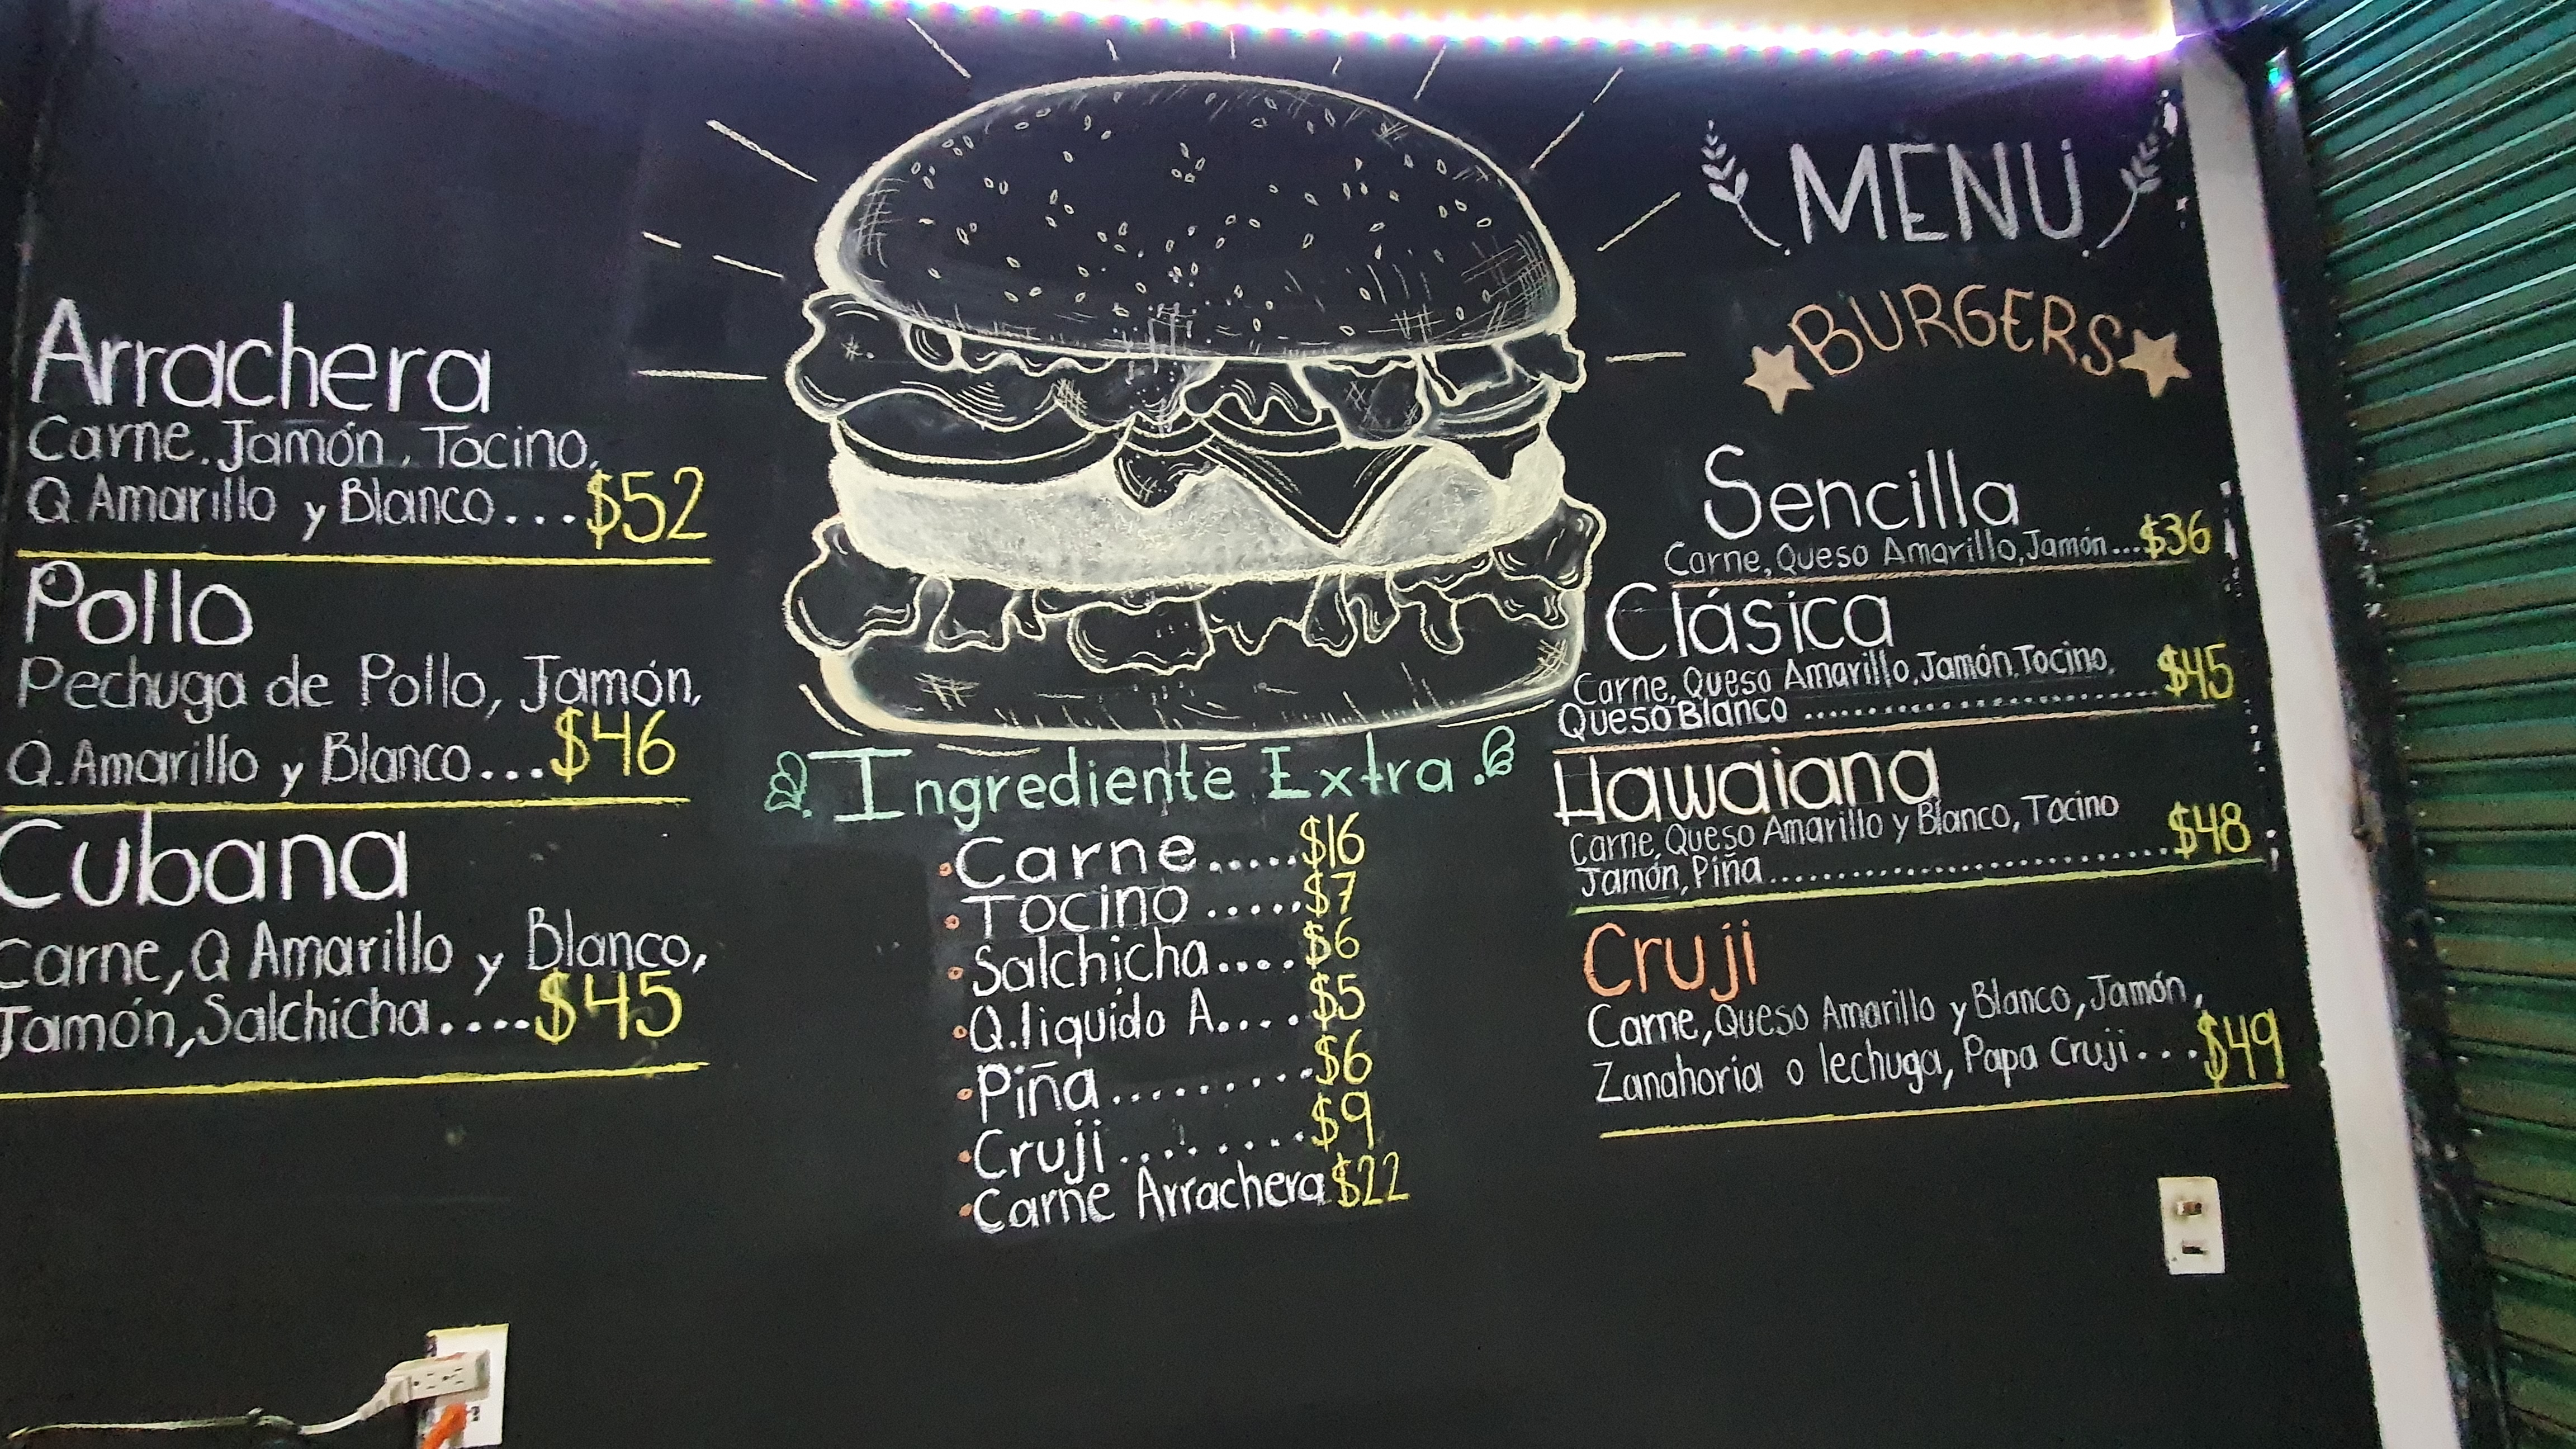 Arrachera
Carne, Jamón, Tocino,
Q Amarillo y Blanco...$52
Pollo
Pechuga de Pollo, Jamón,
Q.Amarillo y Blanco...$46
Cubana
Carne, Q Amarillo y Blanco,
Jamón, Salchicha....$45
Ingrediente Extra.
Carne.....$16
Tocino.....$7
Salchicha....$6
Q.liquido A....$5
Piña.........$6
Cruji.........$9
Carne Arrachera $22
MENÚ
BURGERS
Sencilla
Carne, Queso Amarillo, Jamón...$36
Clásica
Carne, Queso Amarillo, Jamón, Tocino,
Queso Blanco ........................$45
Hawaiana
Carne, Queso Amarillo y Blanco, Tocino
Jamón, Piña..............................$48
Cruji
Carne, Queso Amarillo y Blanco, Jamón,
Zanahoria o lechuga, Papa Cruji...$49